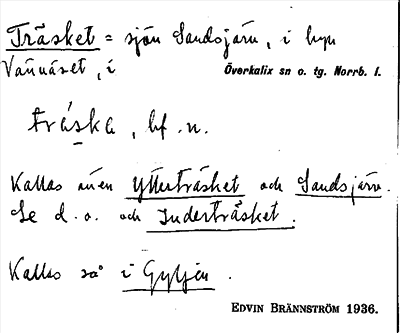 Träsket = sjön Sandsjärv, i byn
Vännäset, i Överkalix sn o. tg. Norrb. l.
träska, bf. n.
Kallas även Ytterträsket och Sandsjärv.
Se d. o. och Inderträsket.
Kallas så i Gyljen.
EDVIN BRÄNNSTRÖM 1936.